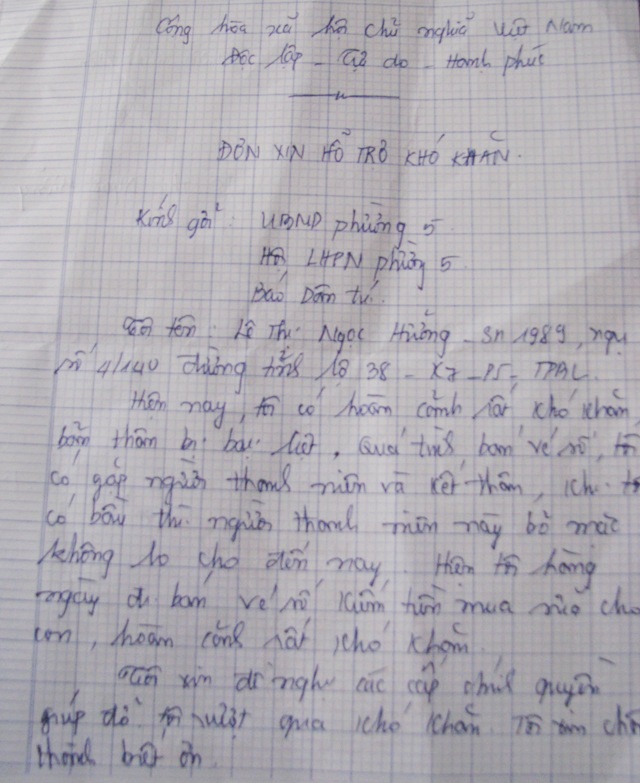 Cộng hòa xã hội chủ nghĩa Việt Nam
Độc lập - Tự do - Hạnh phúc
ĐƠN XIN HỖ TRỢ KHÓ KHĂN.
Kính gởi: UBND phường 5
Hội LHPN phường 5
Báo Dân trí.
Tôi tên: Lê Thị Ngọc Hường - Sn 1989, ngụ
số 4/140 đường tỉnh lộ 38 - K7 - P5, TPBL.
Hiện nay, tôi có hoàn cảnh rất khó khăn,
bản thân bị bại liệt. Quá trình bán vé số, tôi
có gặp người thanh niên và kết thân, khi tôi
có bầu thì người thanh niên này bỏ mặc
không lo cho đến nay. Hiện tôi hằng
ngày đi bán vé số kiếm tiền mua sữa cho
con, hoàn cảnh rất khó khăn.
Tôi xin đề nghị các cấp chính quyền
giúp đỡ tôi vượt qua khó khăn. Tôi xin chân
thành biết ơn.